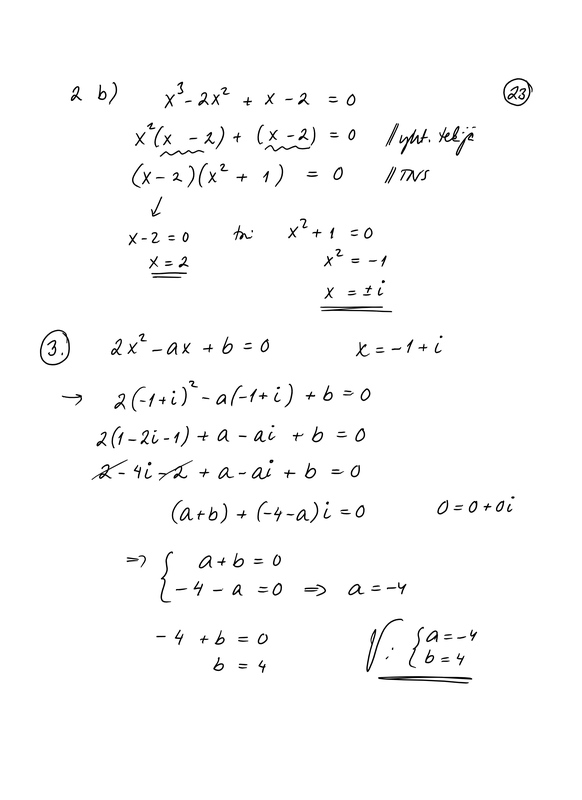 2 b) x³ - 2x² + x - 2 = 0 (23)
x²(x - 2) + (x - 2) = 0 // yht. tekijä
(x - 2)(x² + 1) = 0 // TNS
↙
x - 2 = 0 tai x² + 1 = 0
x = 2 x² = -1
x = ± i
3. 2x² - ax + b = 0 x = -1 + i
→ 2(-1+i)² - a(-1+i) + b = 0
2(1 - 2i - 1) + a - ai + b = 0
2 - 4i - 2 + a - ai + b = 0
(a+b) + (-4-a)i = 0 0 = 0 + 0i
⇒ { a + b = 0
-4 - a = 0 ⇒ a = -4
-4 + b = 0 V: { a = -4
b = 4 b = 4